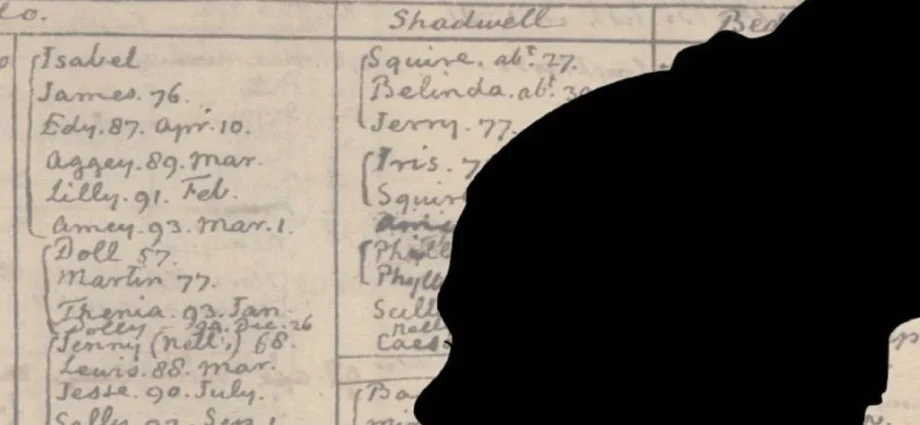 lo.
Isabel
James. 76.
Edy. 87. Apr. 10.
Aggey. 89. Mar.
Lilly. 91. Feb.
Amey. 93. Mar. 1.
Doll 57.
Martin 77.
Thenia. 93. Jan
Dolly - 94. Dec. 26
Jenny (Nell's) 68.
Lewis. 88. Mar.
Jesse. 90. July.
Sally
Shadwell
Squire. abt. 27.
Belinda. abt.
Jerry. 77.
Iris. 7
Squir
Phyll
Scill
nell
Caes
Ba
Bed